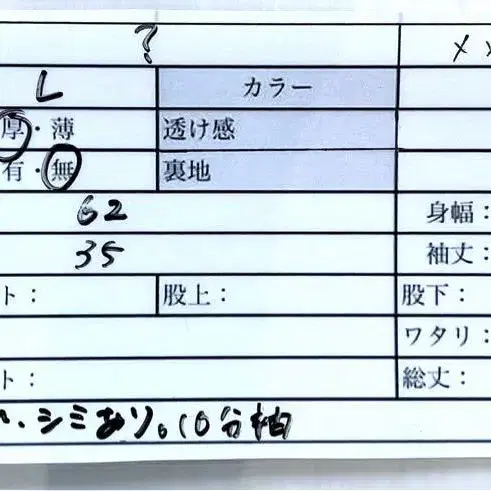 ? ××
L カラー
厚・薄 透け感
有・無 裏地
62 身幅：
35 袖丈：
ト： 股上： 股下：
ワタリ：
ト： 総丈：
、シミあり。10分袖